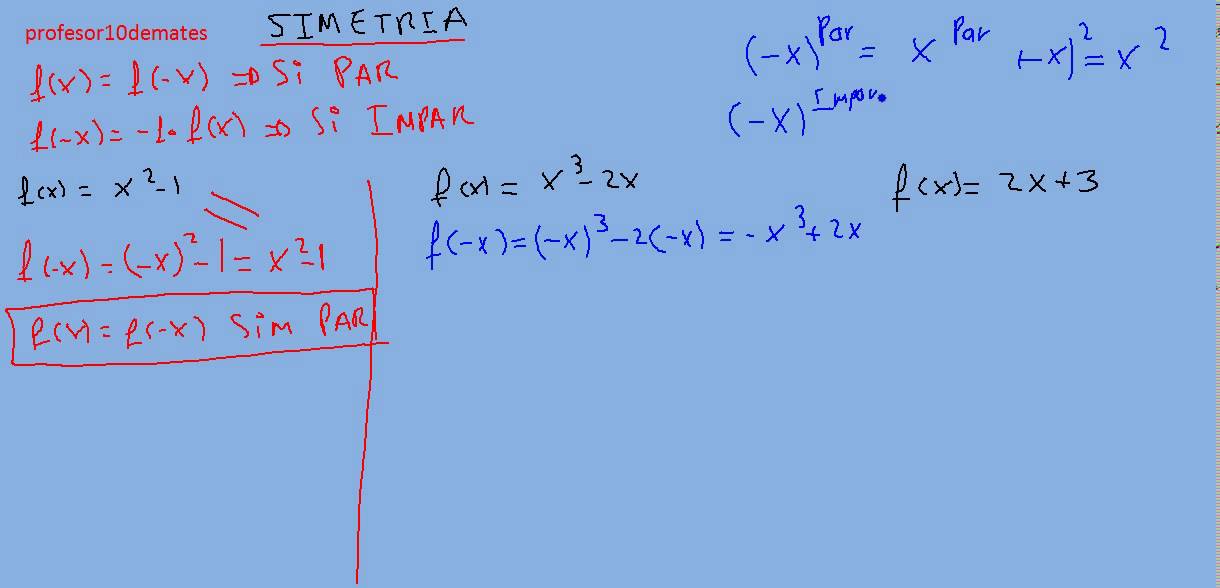 profesor10demates
SIMETRIA
f(x) = f(-x) ⇒ Si PAR
f(-x) = -1· f(x) ⇒ Si IMPAR
(-x)^Par = x^Par (-x)^2 = x^2
(-x)^Impar
f(x) = x^2-1
f(-x) = (-x)^2-1 = x^2-1
f(x) = f(-x) Sim PAR
f(x) = x^3-2x
f(-x) = (-x)^3-2(-x) = -x^3+2x
f(x) = 2x+3